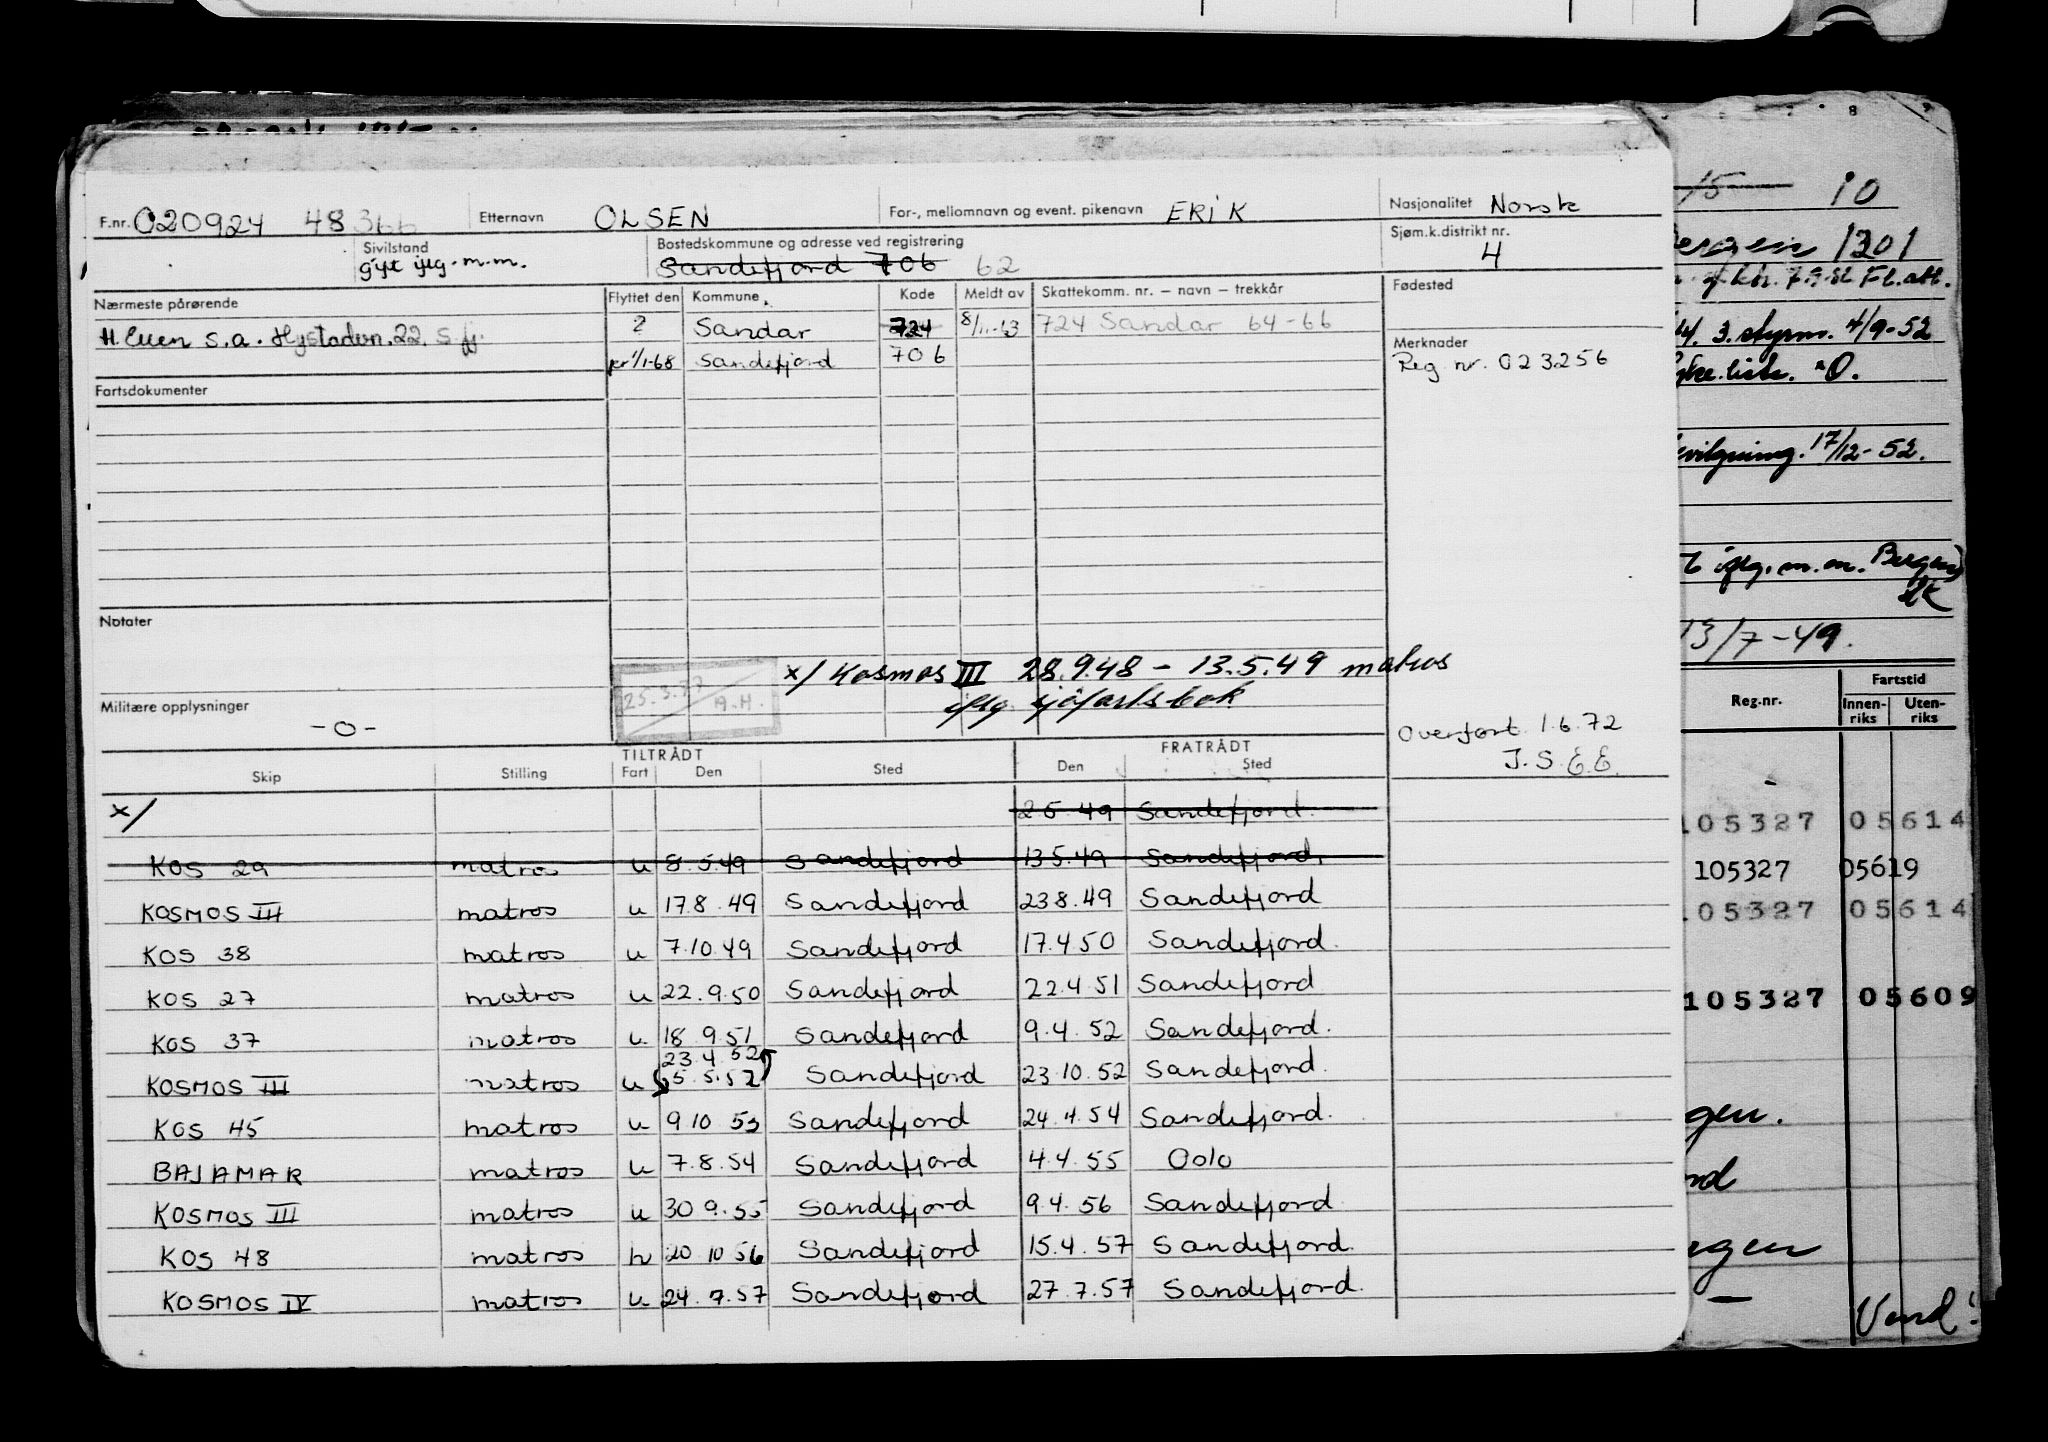 F.nr. 020924 48366 Etternavn OLSEN For-, mellomnavn og event. pikenavn ERIK Nasjonalitet Norsk
Sivilstand gift iflg. m.m. Bostedskommune og adresse ved registrering Sandefjord 706 62 Sjøm.k.distrikt nr. 4
Nærmeste pårørende Flyttet den Kommune Kode Meldt av Skattekomm. nr. — navn — trekkår Fødested
H. Ellen s.a. Hystadvn. 22. S.fj. ? Sandar 724 8/11-63 724 Sandar 64-66
pr 1/1-68 Sandefjord 706 Merknader
Reg. nr. 023256
Fartsdokumenter
Notater
x/ Kosmos III 28.9.48 - 13.5.49 matros
25.3.77 A.H. iflg. sjøfartsbok
Militære opplysninger -0-
Overført 1.6.72
J.S.E.E.
TILTRÅDT FRATRÅDT
Skip Stilling Fart Den Sted Den Sted
x/ 2 5.49 Sandefjord.
KOS 29 matros u 8.5.49 Sandefjord 13.5.49 Sandefjord.
KOSMOS III matros u 17.8.49 Sandefjord 23.8.49 Sandefjord
KOS 38 matros u 7.10.49 Sandefjord 17.4.50 Sandefjord.
KOS 27 matros u 22.9.50 Sandefjord 22.4.51 Sandefjord
KOS 37 matros u 18.9.51 Sandefjord 9.4.52 Sandefjord.
23.4.52
KOSMOS III matros u 5.5.52 Sandefjord 23.10.52 Sandefjord.
KOS 45 matros u 9.10.53 Sandefjord 24.4.54 Sandefjord.
BAJAMAR matros u 7.8.54 Sandefjord 4.4.55 Oslo
KOSMOS III matros u 30.9.55 Sandefjord 9.4.56 Sandefjord.
KOS 48 matros u 20.10.56 Sandefjord 15.4.57 Sandefjord.
KOSMOS IV matros u 24.7.57 Sandefjord 27.7.57 Sandefjord.
8
15 10
Bergen 1301
3. styrm. 4/9-52
17/12-52.
iflg. m.m. Bergen
13/7-49.
Reg.nr. Fartstid
Innenriks Utenriks
105327 05614
105327 05619
105327 05614
105327 05609
Vend!